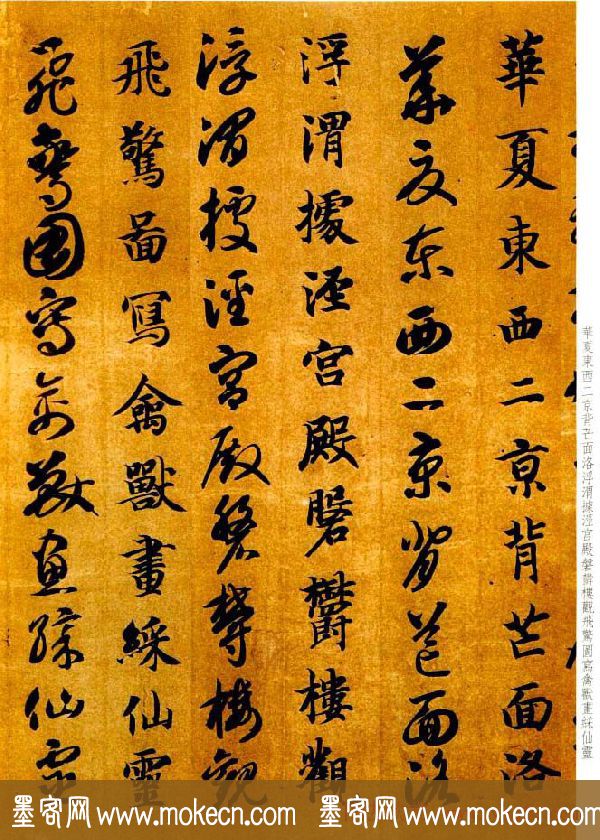 華夏東西二京背芒面洛浮渭據涇宮殿磐鬱樓觀飛驚圖寫禽獸畫綵仙靈
華夏東西二京背芒面洛
華夏東西二京背芒面洛
浮渭據涇宮殿磐鬱樓觀
浮渭據涇宮殿磐鬱樓觀
飛驚啚寫禽獸畫綵仙靈
飛驚圖寫禽獸畫綵仙靈
墨客网 www.mokecn.com 墨客网 www.mokecn.com